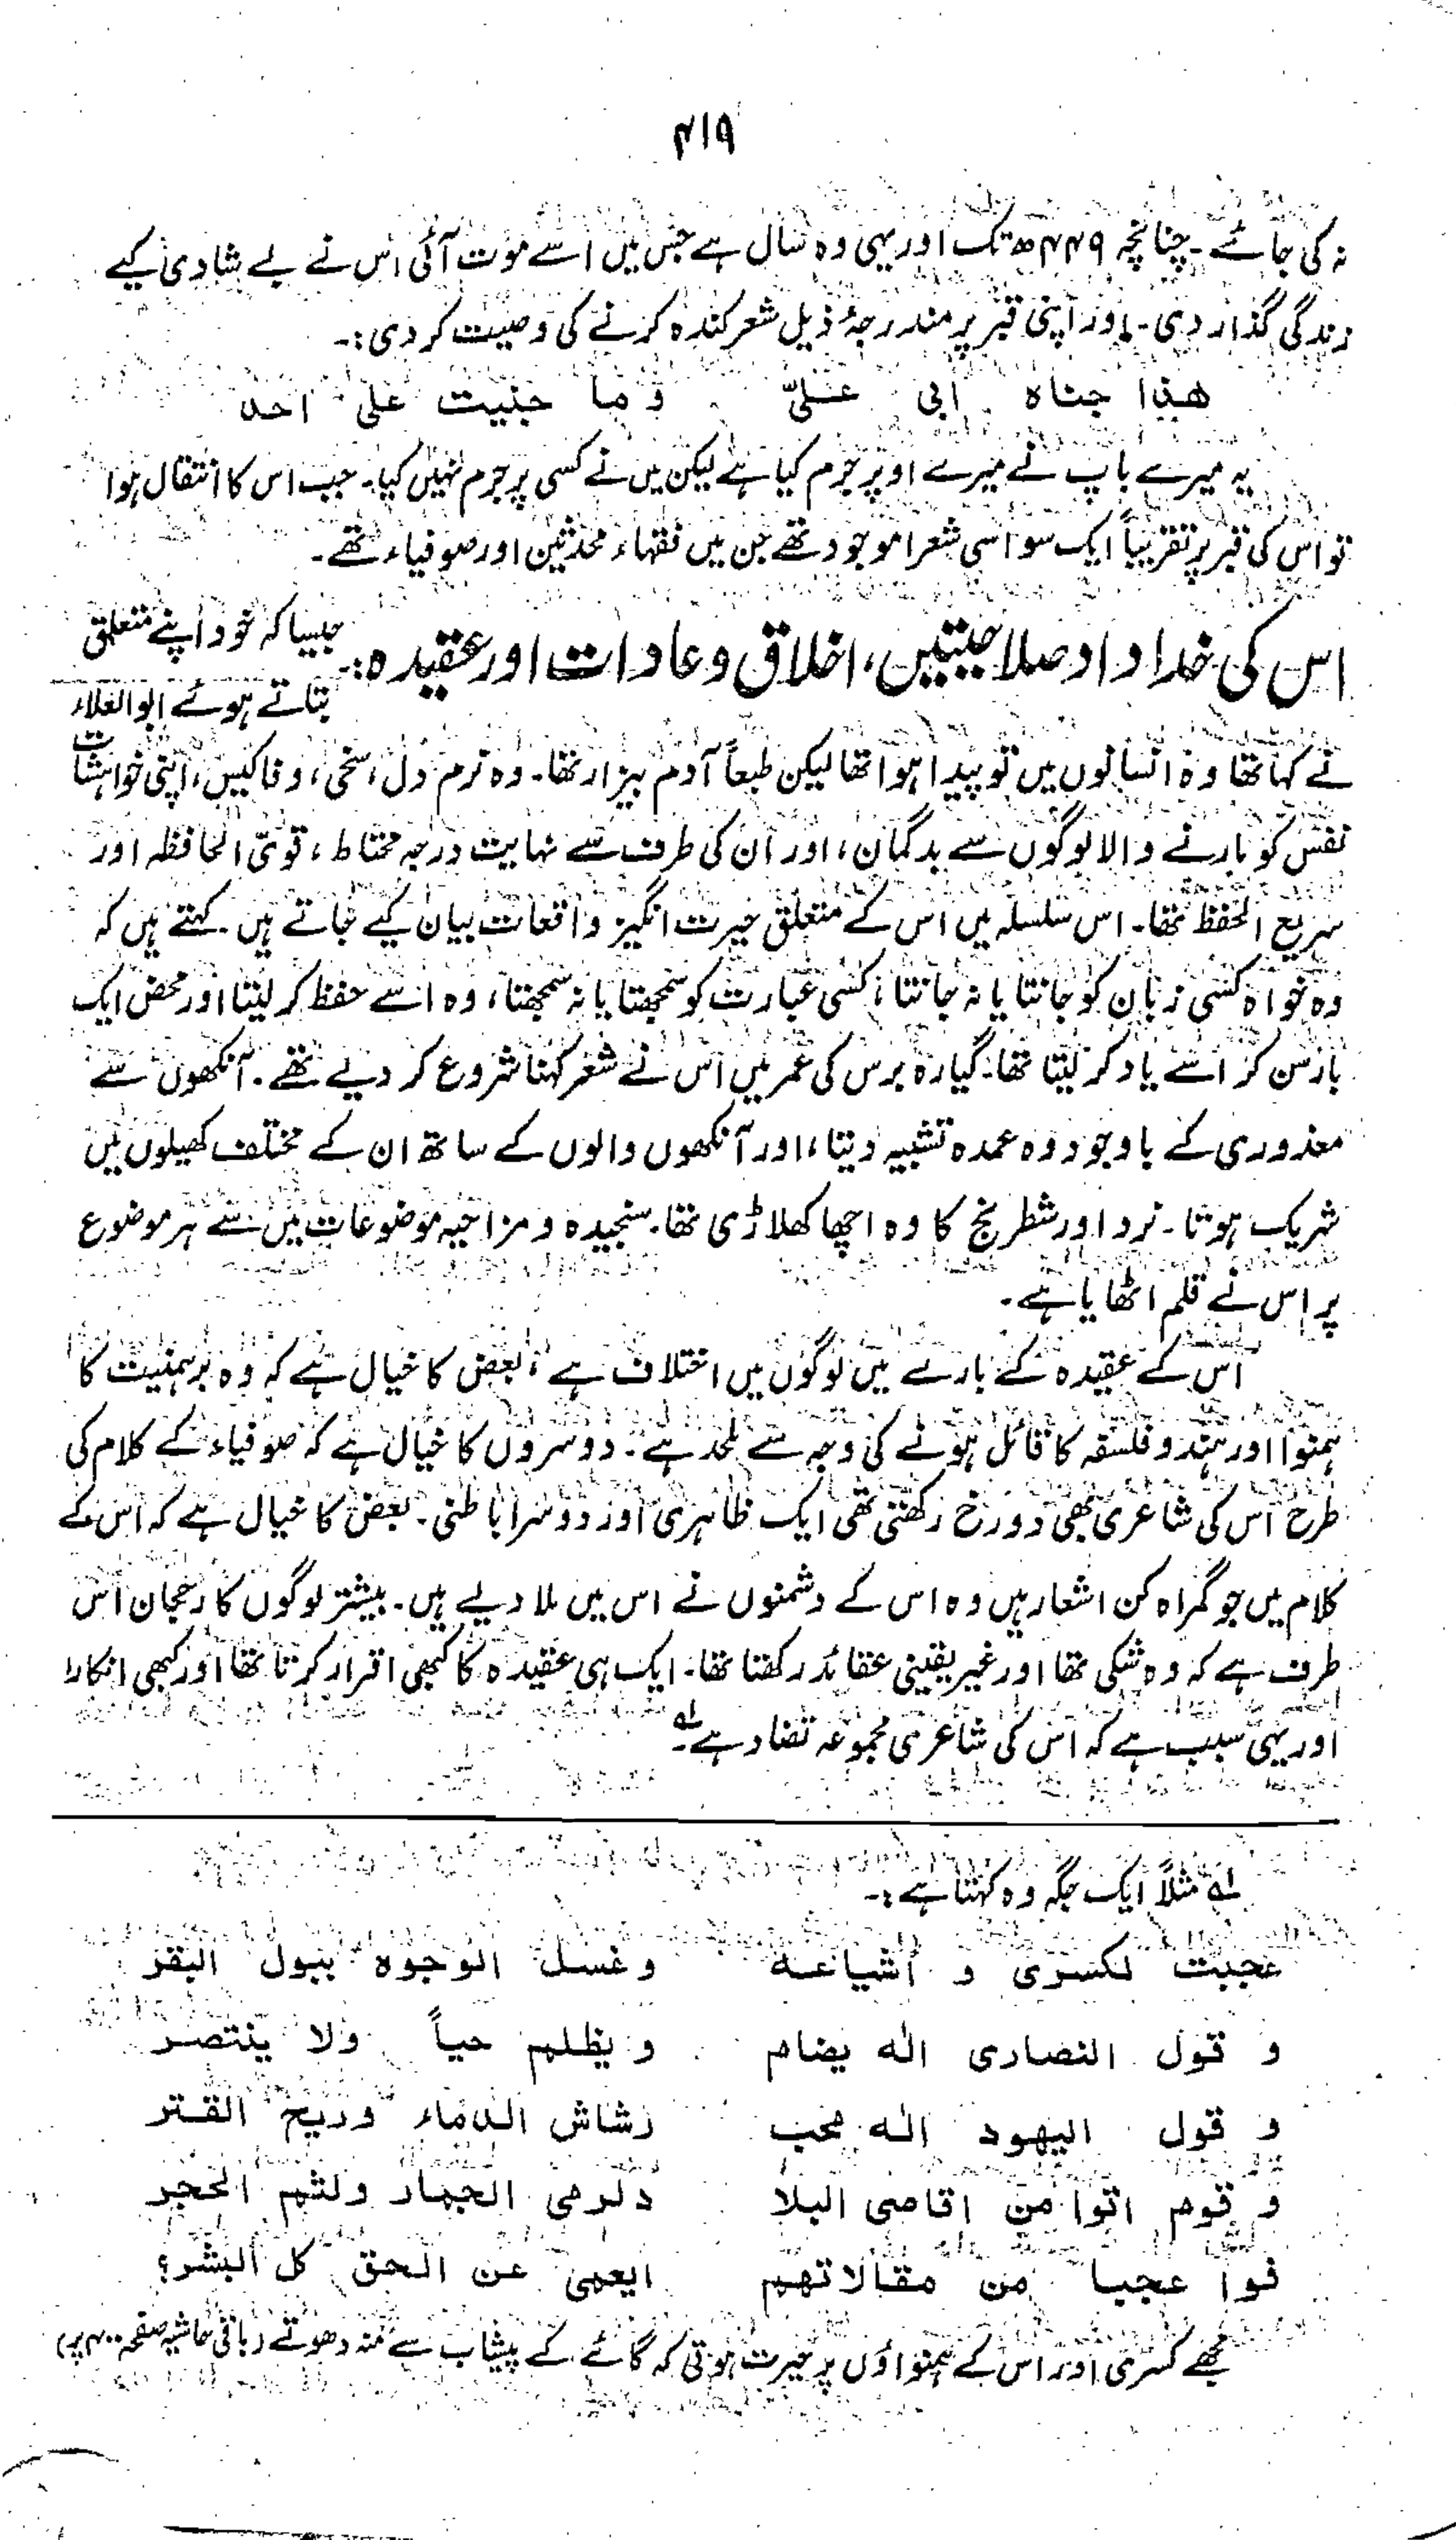 ۴۱۹
نہ کی جائے۔ چنانچہ ۴۴۹ھ تک اور یہی وہ سال ہے جس میں اسے موت آئی اس نے بے شادی کیے
زندگی گذار دی۔ اور اپنی قبر پر مندرجۂ ذیل شعر کندہ کرنے کی وصیت کر دی:۔
هذا جناه ابی علیّ وما جنیت علی احد
یہ میرے باپ نے میرے اوپر جرم کیا ہے لیکن میں نے کسی پر جرم نہیں کیا۔ جب اس کا انتقال ہوا
تو اس کی قبر پر تقریباً ایک سو اسی شعرا موجود تھے جن میں فقہاء محدثین اور صوفیاء تھے۔
اس کی خداداد صلاحیتیں، اخلاق و عادات اور عقیدہ:۔ جیسا کہ خود اپنے متعلق
بتاتے ہوئے ابوالعلاء
نے کہا تھا وہ انسانوں میں تو پیدا ہوا تھا لیکن طبعاً آدم بیزار تھا۔ وہ نرم دل، سخی، وفاکیش، اپنی خواہشات
نفس کو مارنے والا لوگوں سے بدگمان، اور ان کی طرف سے نہایت درجہ محتاط، قوی الحافظہ اور
سریع الحفظ تھا۔ اس سلسلہ میں اس کے متعلق حیرت انگیز واقعات بیان کیے جاتے ہیں۔ کہتے ہیں کہ
وہ خواہ کسی زبان کو جانتا یا نہ جانتا، کسی عبارت کو سمجھتا یا نہ سمجھتا، وہ اسے حفظ کر لیتا اور محض ایک
بار سن کر اسے یاد کر لیتا تھا۔ گیارہ برس کی عمر میں اس نے شعر کہنا شروع کر دیے تھے۔ آنکھوں سے
معذوری کے باوجود وہ عمدہ تشبیہ دیتا، اور آنکھوں والوں کے ساتھ ان کے مختلف کھیلوں میں
شریک ہوتا۔ نرد اور شطرنج کا وہ اچھا کھلاڑی تھا۔ سنجیدہ و مزاحیہ موضوعات میں سے ہر موضوع
پر اس نے قلم اٹھایا ہے۔
اس کے عقیدہ کے بارے میں لوگوں میں اختلاف ہے، بعض کا خیال ہے کہ وہ برہمنیت کا
ہمنوا اور ہندو فلسفہ کا قائل ہونے کی وجہ سے ملحد ہے۔ دوسروں کا خیال ہے کہ صوفیاء کے کلام کی
طرح اس کی شاعری بھی دو رخ رکھتی تھی ایک ظاہری اور دوسرا باطنی۔ بعض کا خیال ہے کہ اس کے
کلام میں جو گمراہ کن اشعار ہیں وہ اس کے دشمنوں نے اس میں ملا دیے ہیں۔ بیشتر لوگوں کا رجحان اس
طرف ہے کہ وہ شکی تھا اور غیر یقینی عقائد رکھتا تھا۔ ایک ہی عقیدہ کا کبھی اقرار کرتا تھا اور کبھی انکار
اور یہی سبب ہے کہ اس کی شاعری مجموعہ تضاد ہے۔ لہ
لہ مثلاً ایک جگہ وہ کہتا ہے:۔
عجبت لكسرى و أشياعه وغسل الوجوه ببول البقر
و قول النصارى اله يضام و يظلم حياً ولا ينتصر
و قول اليهود اله محب رشاش الدماء وريح القتر
و قوم اتوا من اقاصى البلا دلرمى الجمار ولثم الحجر
فوا عجبا من مقالاتهم ايعمى عن الحق كل البشر؟
مجھے کسریٰ اور اس کے ہمنواؤں پر حیرت ہوتی کہ گائے کے پیشاب سے منہ دھوتے (باقی حاشیہ صفحہ ۴۰۰ پر)